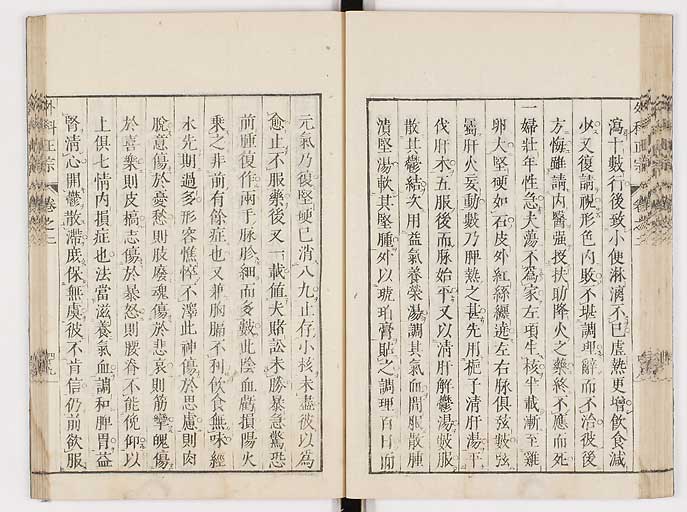 瀉十數行後致小便淋漓不已虛熱更增飲食減
少又復請視形色內敗不堪調理辭而不治彼後
方悔雖請內醫強投扶助降火之藥終不應而死
一婦壯年性急夫蕩不爲家左項生核半載漸至雞
卵大堅硬如石皮外紅絲纏遶左右脉俱弦數弦
屬肝火妄動數乃脾熱之甚先用梔子清肝湯平
伐肝木五服後而脉始平又以清肝解鬱湯數服
散其鬱結次用益氣養榮湯調其氣血間服散腫
潰堅湯軟其堅腫外以琥珀膏貼之調理百日而
元氣乃復堅硬已消八九止存小核未盡彼以爲
愈止不服藥後又一載値夫賭訟未勝暴急驚恐
前腫復作兩手脉胗細而多數此陰血虧損陽火
乘之非前有餘症也又兼胸膈不利飲食無味經
水先期過多形容憔悴不澤此神傷於思慮則肉
脫意傷於憂愁則肢廢魂傷於悲哀則筋攣魄傷
於喜樂則皮槁志傷於暴怒則腰脊不能俛仰以
上俱七情內損症也法當滋養氣血調和脾胃益
腎清心開鬱散滯庶保無虞彼不肯信仍前飲服
外科正宗
卷之二